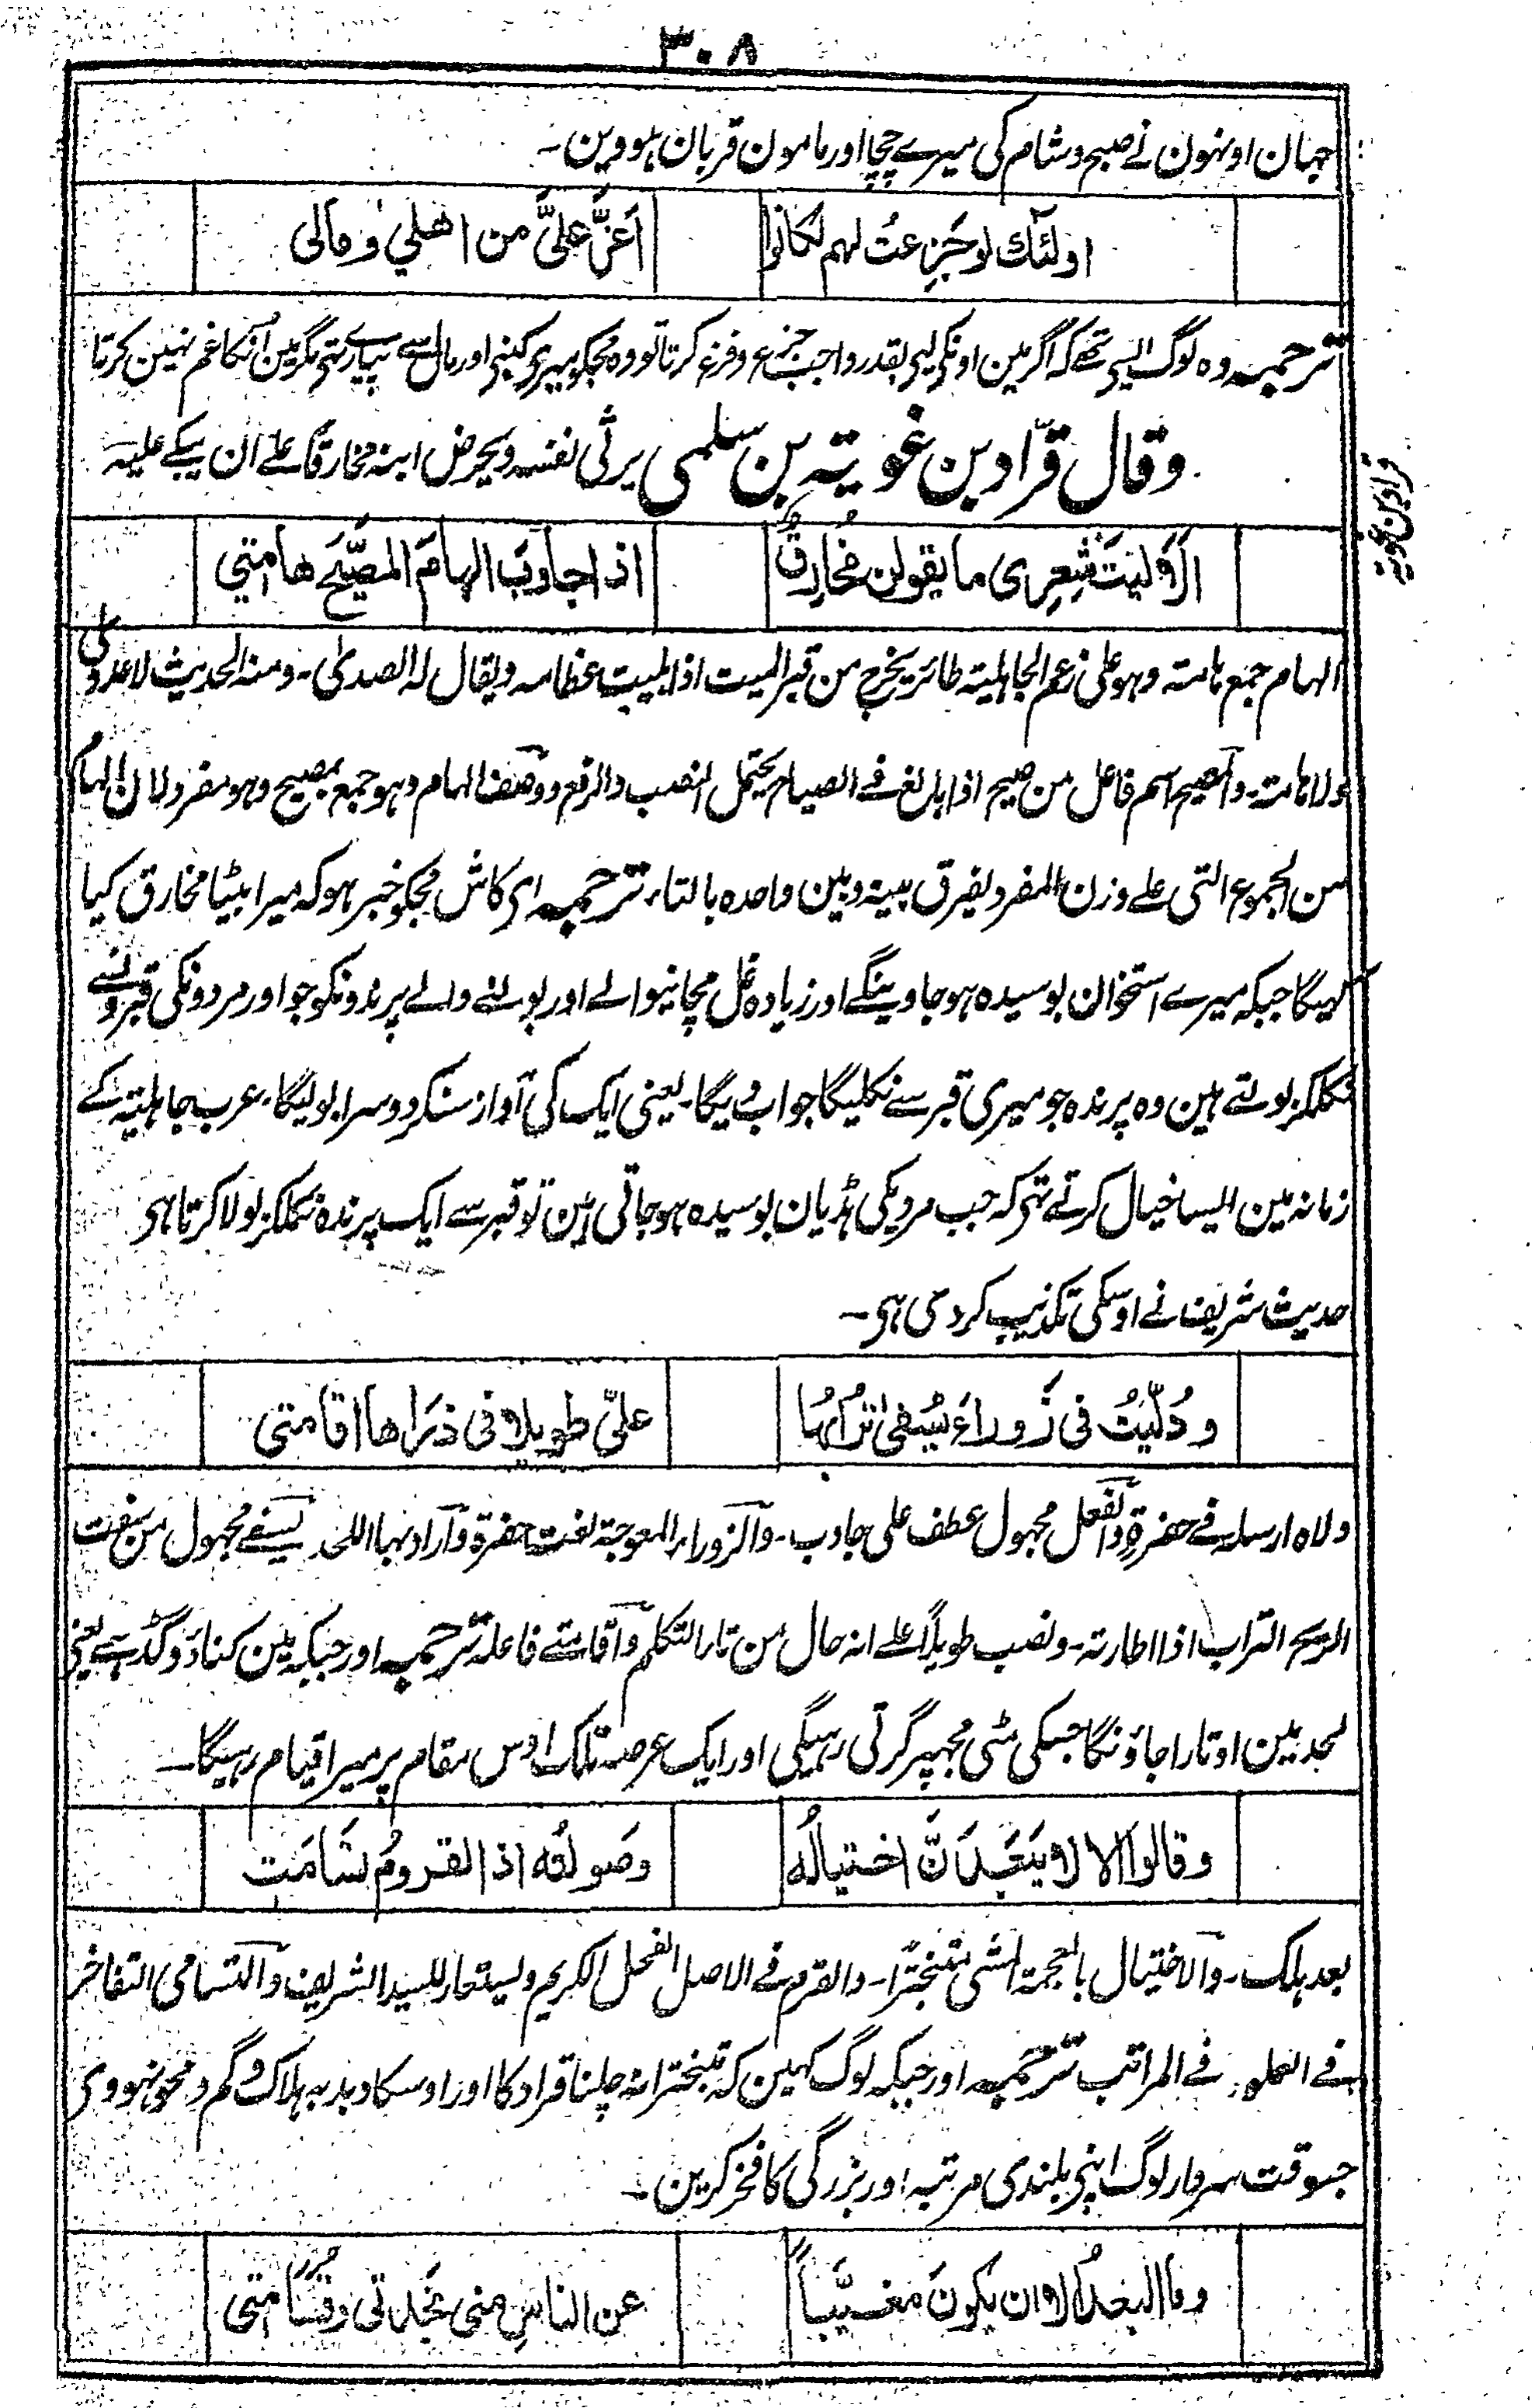 ۳۰۸
جہان اونہون نے صبح و شام کی میرے چچا اور مامون قربان ہووین۔
اولئك لو جَزِعتُ لهم لكانوا اَعَزَّ عليَّ من اهلي و مالی
ترجمہ وہ لوگ ایسی تھے کہ اگر مین اونکی لیی بقدر واجب جزع و فزع کرتا تو وہ مجکو میری کنبی اور مال سے پیارے تھی مگر مین اُنکا غم نہین کرتا
وقال قرّاد بن غویة بن سلمی یرثی نفسہ و یحرض ابنہ مخارقًا علے ان یبکے علیہ
قراد بن غویہ
اَلَا لیتَ شِعرِی ما یقولن مُخارِقٌ اذا جاوَبَ الهامَ المصَیِّحَ هامتي
الہام جمع ہامتہ وہو علی زعم الجاہلیتہ طائر یخرج من قبر المیت اذا بلیت عظامہ و یقال لہ الصدی۔ ومنہ الحدیث لا عدوی
ولا ہامتہ۔ والمصیح اسم فاعل من صیح اذا بالغ فے الصیاح یحتمل النصب والرفع ووصف الہام وہو جمع بمصیح وہو مفرد لان الہام
من الجموع التی علے وزن المفرد یفرق بینہ وبین واحدہ بالتاء۔ ترجمہ ای کاش مجکو خبر ہو کہ میرا بیٹا مخارق کیا
کہیگا جبکہ میرے استخوان بوسیدہ ہو جاوینگے اور زیادہ غل مچانیوالے اور بولنے والے پرندونکو جو اور مردونکی قبرونسے
نکلکر بولتے ہین وہ پرندہ جو میری قبر سے نکلیگا جواب دیگا۔ یعنی ایک کی آواز سنکر دوسرا بولیگا۔ عرب جاہلیتہ کے
زمانہ مین ایسا خیال کرتے تھی کہ جب مردیکی ہڈیان بوسیدہ ہو جاتی ہین تو قبر سے ایک پرندہ نکلکر بولا کرتا ہی
حدیث شریف نے اوسکی تکذیب کر دی ہی۔
و دُلِّیتُ فی زَوراءَ یُسفی تُرابُہا علیَّ طویلا فی ذَراها اقامتی
دلاہ ارسلہ فے حفرة والفعل مجہول عطف علی جاوب۔ والزوراء المعوجۃ نعت حفرة واراد بہا اللحد یسفے مجہول من سفت
الریح التراب اذا اطارتہ۔ ونصب طویلاً علے انہ حال من تاء التکلم واقامتے فاعلہ ترجمہ اور جبکہ مین کنادو گڈہے یعنی
لحد مین اوتارا جاؤنگا جسکی مٹی مجہپر گرتی رہیگی اور ایک عرصہ تلک اوس مقام پر میرا قیام رہیگا۔
وقالوا اَلا لا یَبعَدَنَّ اختیالُه وصَولتُه اذا القرومُ تَسَامَت
بعد ہلک۔ والاختیال بالمعجمۃ المشی متبخترًا۔ والقرم فے الاصل الفحل الکریم ویستعار للسید الشریف والتسامی التفاخر
فے العلو فے المراتب ترجمہ اور جبکہ لوگ کہین کہ تبخترانہ چلنا قراد کا اور اوسکا دبدبہ ہلاک و گم و محو نہووی
جسوقت سردار لوگ اپنی بلندی مرتبہ اور بزرگی کا فخر کرین۔
وما البعدُ الا ان یکونَ مغیَّباً عن الناسِ منی نَجدتی و قسامتی